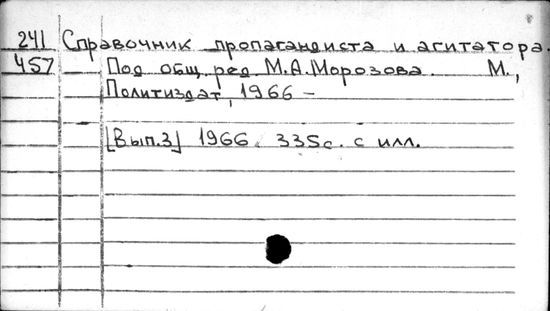 241 Справочник пропагандиста и агитатора.
457 Под общ. ред. М.А.Морозова. М.,
Политиздат, 1966 –
[Вып.3] 1966. 335с. с илл.